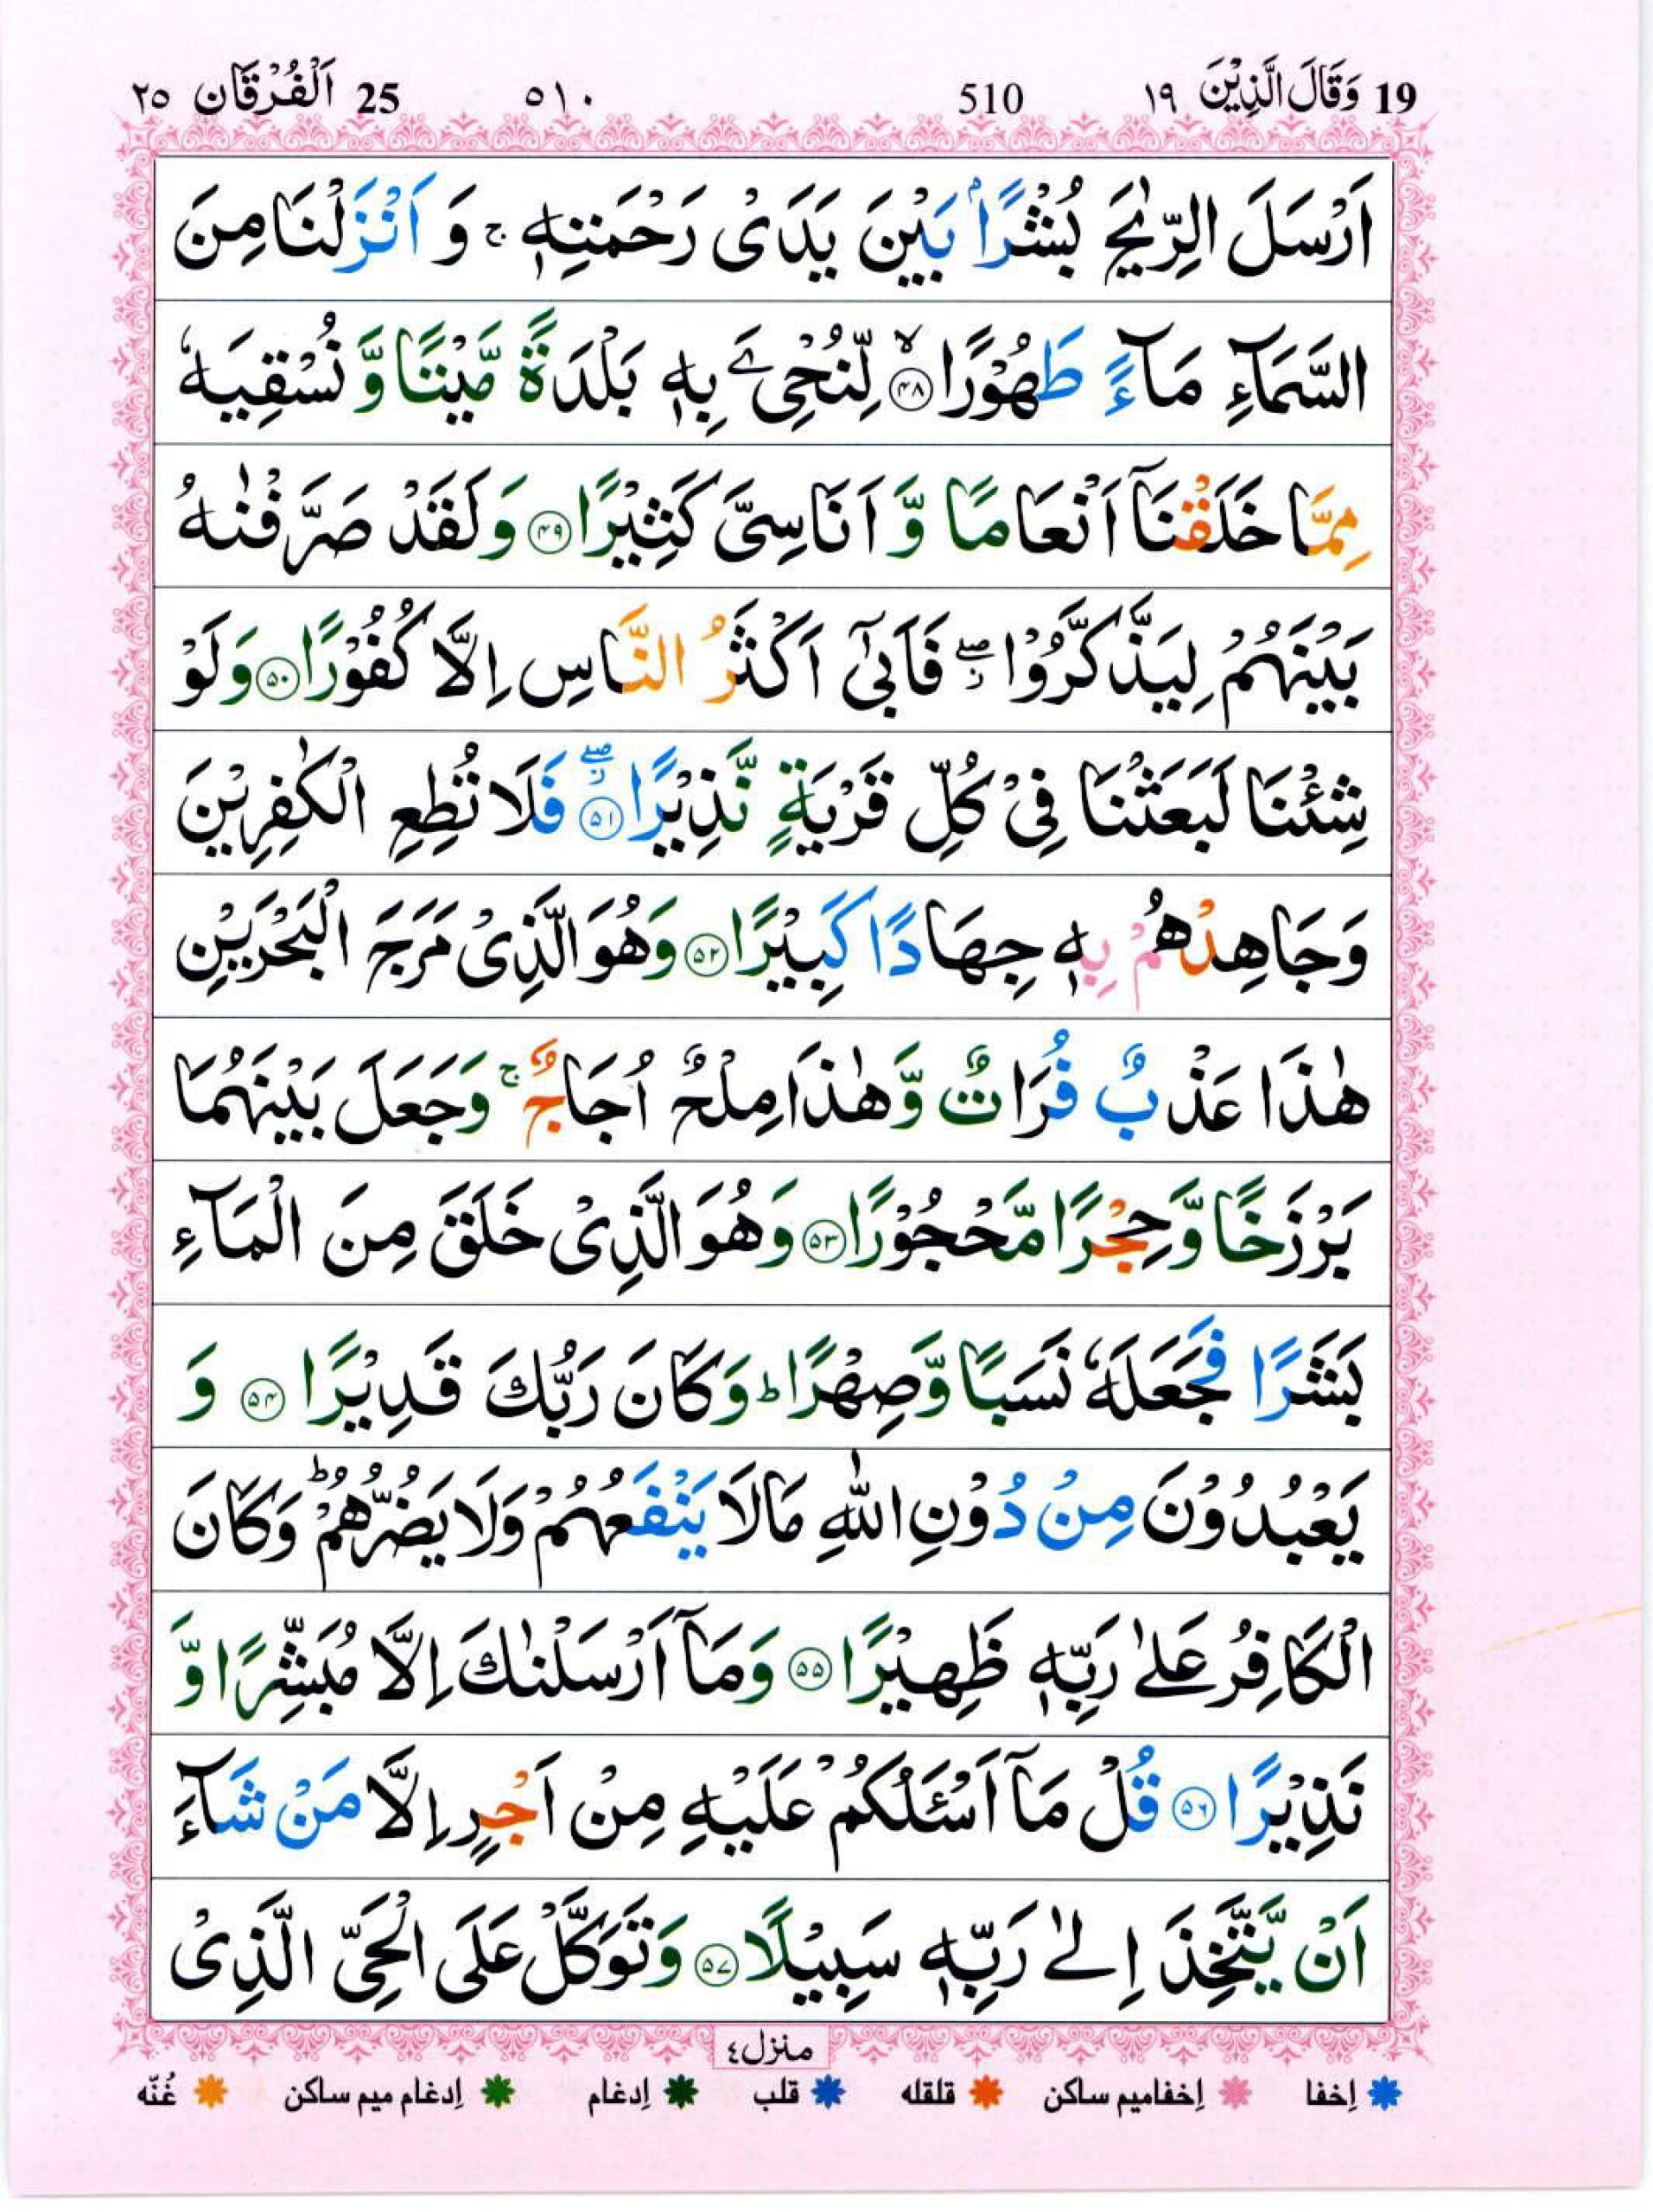 19 وَقَالَ الَّذِيْنَ ١٩ 510 ٥١٠ 25 اَلْفُرْقَان ٢٥
اَرْسَلَ الرِّيٰحَ بُشْرًاۢ بَيْنَ يَدَىْ رَحْمَتِهٖ ۚ وَ اَنْزَلْنَا مِنَ
السَّمَآءِ مَآءً طَهُوْرًا ۙ‏﴿۴۸﴾ لِّنُحْیِۦَ بِهٖ بَلْدَةً مَّيْتًا وَّ نُسْقِيَهٗ
مِمَّا خَلَقْنَاۤ اَنْعَامًا وَّ اَنَاسِىَّ كَثِيْرًا ﴿۴۹﴾ وَلَقَدْ صَرَّفْنٰهُ
بَيْنَهُمْ لِيَذَّكَّرُوْا ۖ فَاَبٰٓى اَكْثَرُ النَّاسِ اِلَّا كُفُوْرًا ﴿۵۰﴾ وَلَوْ
شِئْنَا لَبَعَثْنَا فِىْ كُلِّ قَرْيَةٍ نَّذِيْرًا ۖ ﴿۵۱﴾ فَلَا تُطِعِ الْكٰفِرِيْنَ
وَجَاهِدْهُمْ بِهٖ جِهَادًا كَبِيْرًا ﴿۵۲﴾ وَهُوَ الَّذِىْ مَرَجَ الْبَحْرَيْنِ
هٰذَا عَذْبٌ فُرَاتٌ وَّهٰذَا مِلْحٌ اُجَاجٌ ۚ وَجَعَلَ بَيْنَهُمَا
بَرْزَخًا وَّحِجْرًا مَّحْجُوْرًا ﴿۵۳﴾ وَهُوَ الَّذِىْ خَلَقَ مِنَ الْمَآءِ
بَشَرًا فَجَعَلَهٗ نَسَبًا وَّصِهْرًا ؕ وَكَانَ رَبُّكَ قَدِيْرًا ﴿۵۴﴾ وَ
يَعْبُدُوْنَ مِنْ دُوْنِ اللّٰهِ مَا لَا يَنْفَعُهُمْ وَلَا يَضُرُّهُمْ ؕ وَكَانَ
الْكَافِرُ عَلٰى رَبِّهٖ ظَهِيْرًا ﴿۵۵﴾ وَمَاۤ اَرْسَلْنٰكَ اِلَّا مُبَشِّرًا وَّ
نَذِيْرًا ﴿۵۶﴾ قُلْ مَاۤ اَسْئَلُكُمْ عَلَيْهِ مِنْ اَجْرٍ اِلَّا مَنْ شَآءَ
اَنْ يَّتَّخِذَ اِلٰى رَبِّهٖ سَبِيْلًا ﴿۵۷﴾ وَتَوَكَّلْ عَلَى الْحَىِّ الَّذِىْ
منزل٤
إخفا إخفاميم ساكن قلقله قلب إدغام إدغام ميم ساكن غُنّه